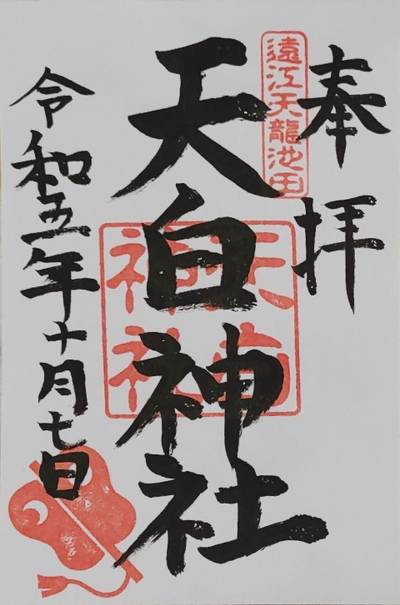 奉拝
遠江天龍池田
天白神社
天白神社
令和五年十月七日